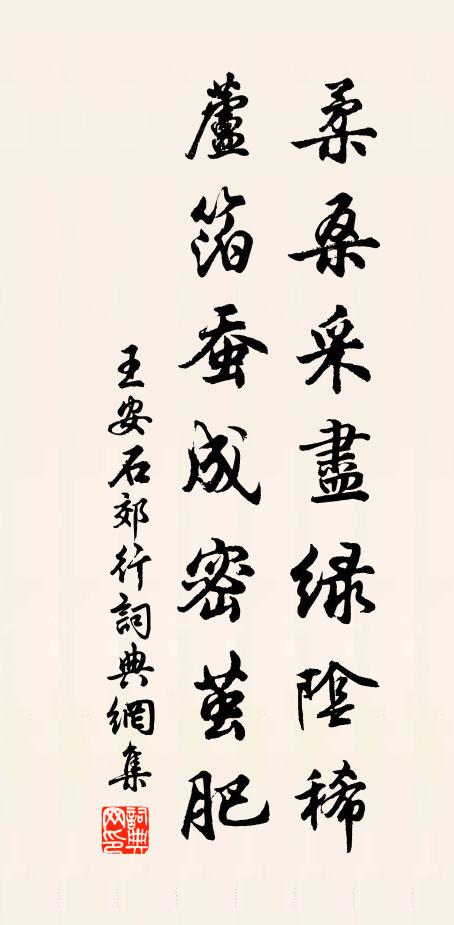 柔桑采盡緑陰稀
蘆箔蚕成密茧肥
王安石郊行詞典網集
詞典网印